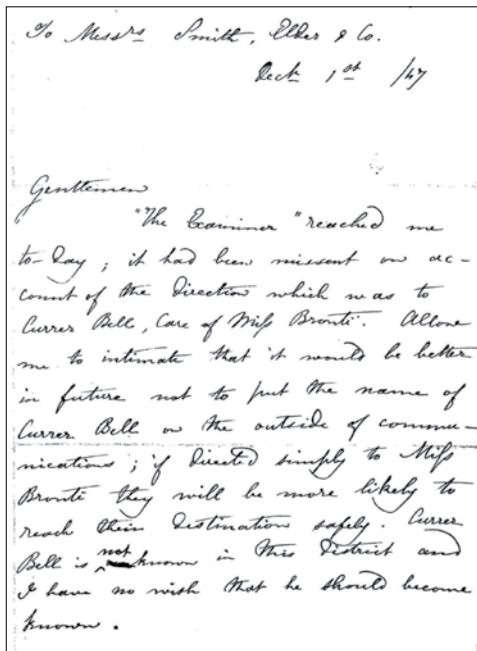 To Messrs Smith, Elder & Co.
Decbr 1st /47
Gentlemen
"The Examiner" reached me
to-day; it had been missent on ac-
count of the Direction which was to
Currer Bell, Care of Miss Brontë. Allow
me to intimate that it would be better
in future not to put the name of
Currer Bell on the outside of commu-
nications; if directed simply to Miss
Brontë they will be more likely to
reach their destination safely. Currer
Bell is not known in this District and
I have no wish that he should become
known.